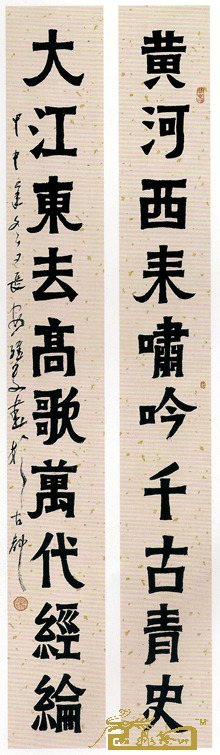 黄河西来啸吟千古青史
大江東去高歌萬代經綸
甲申年